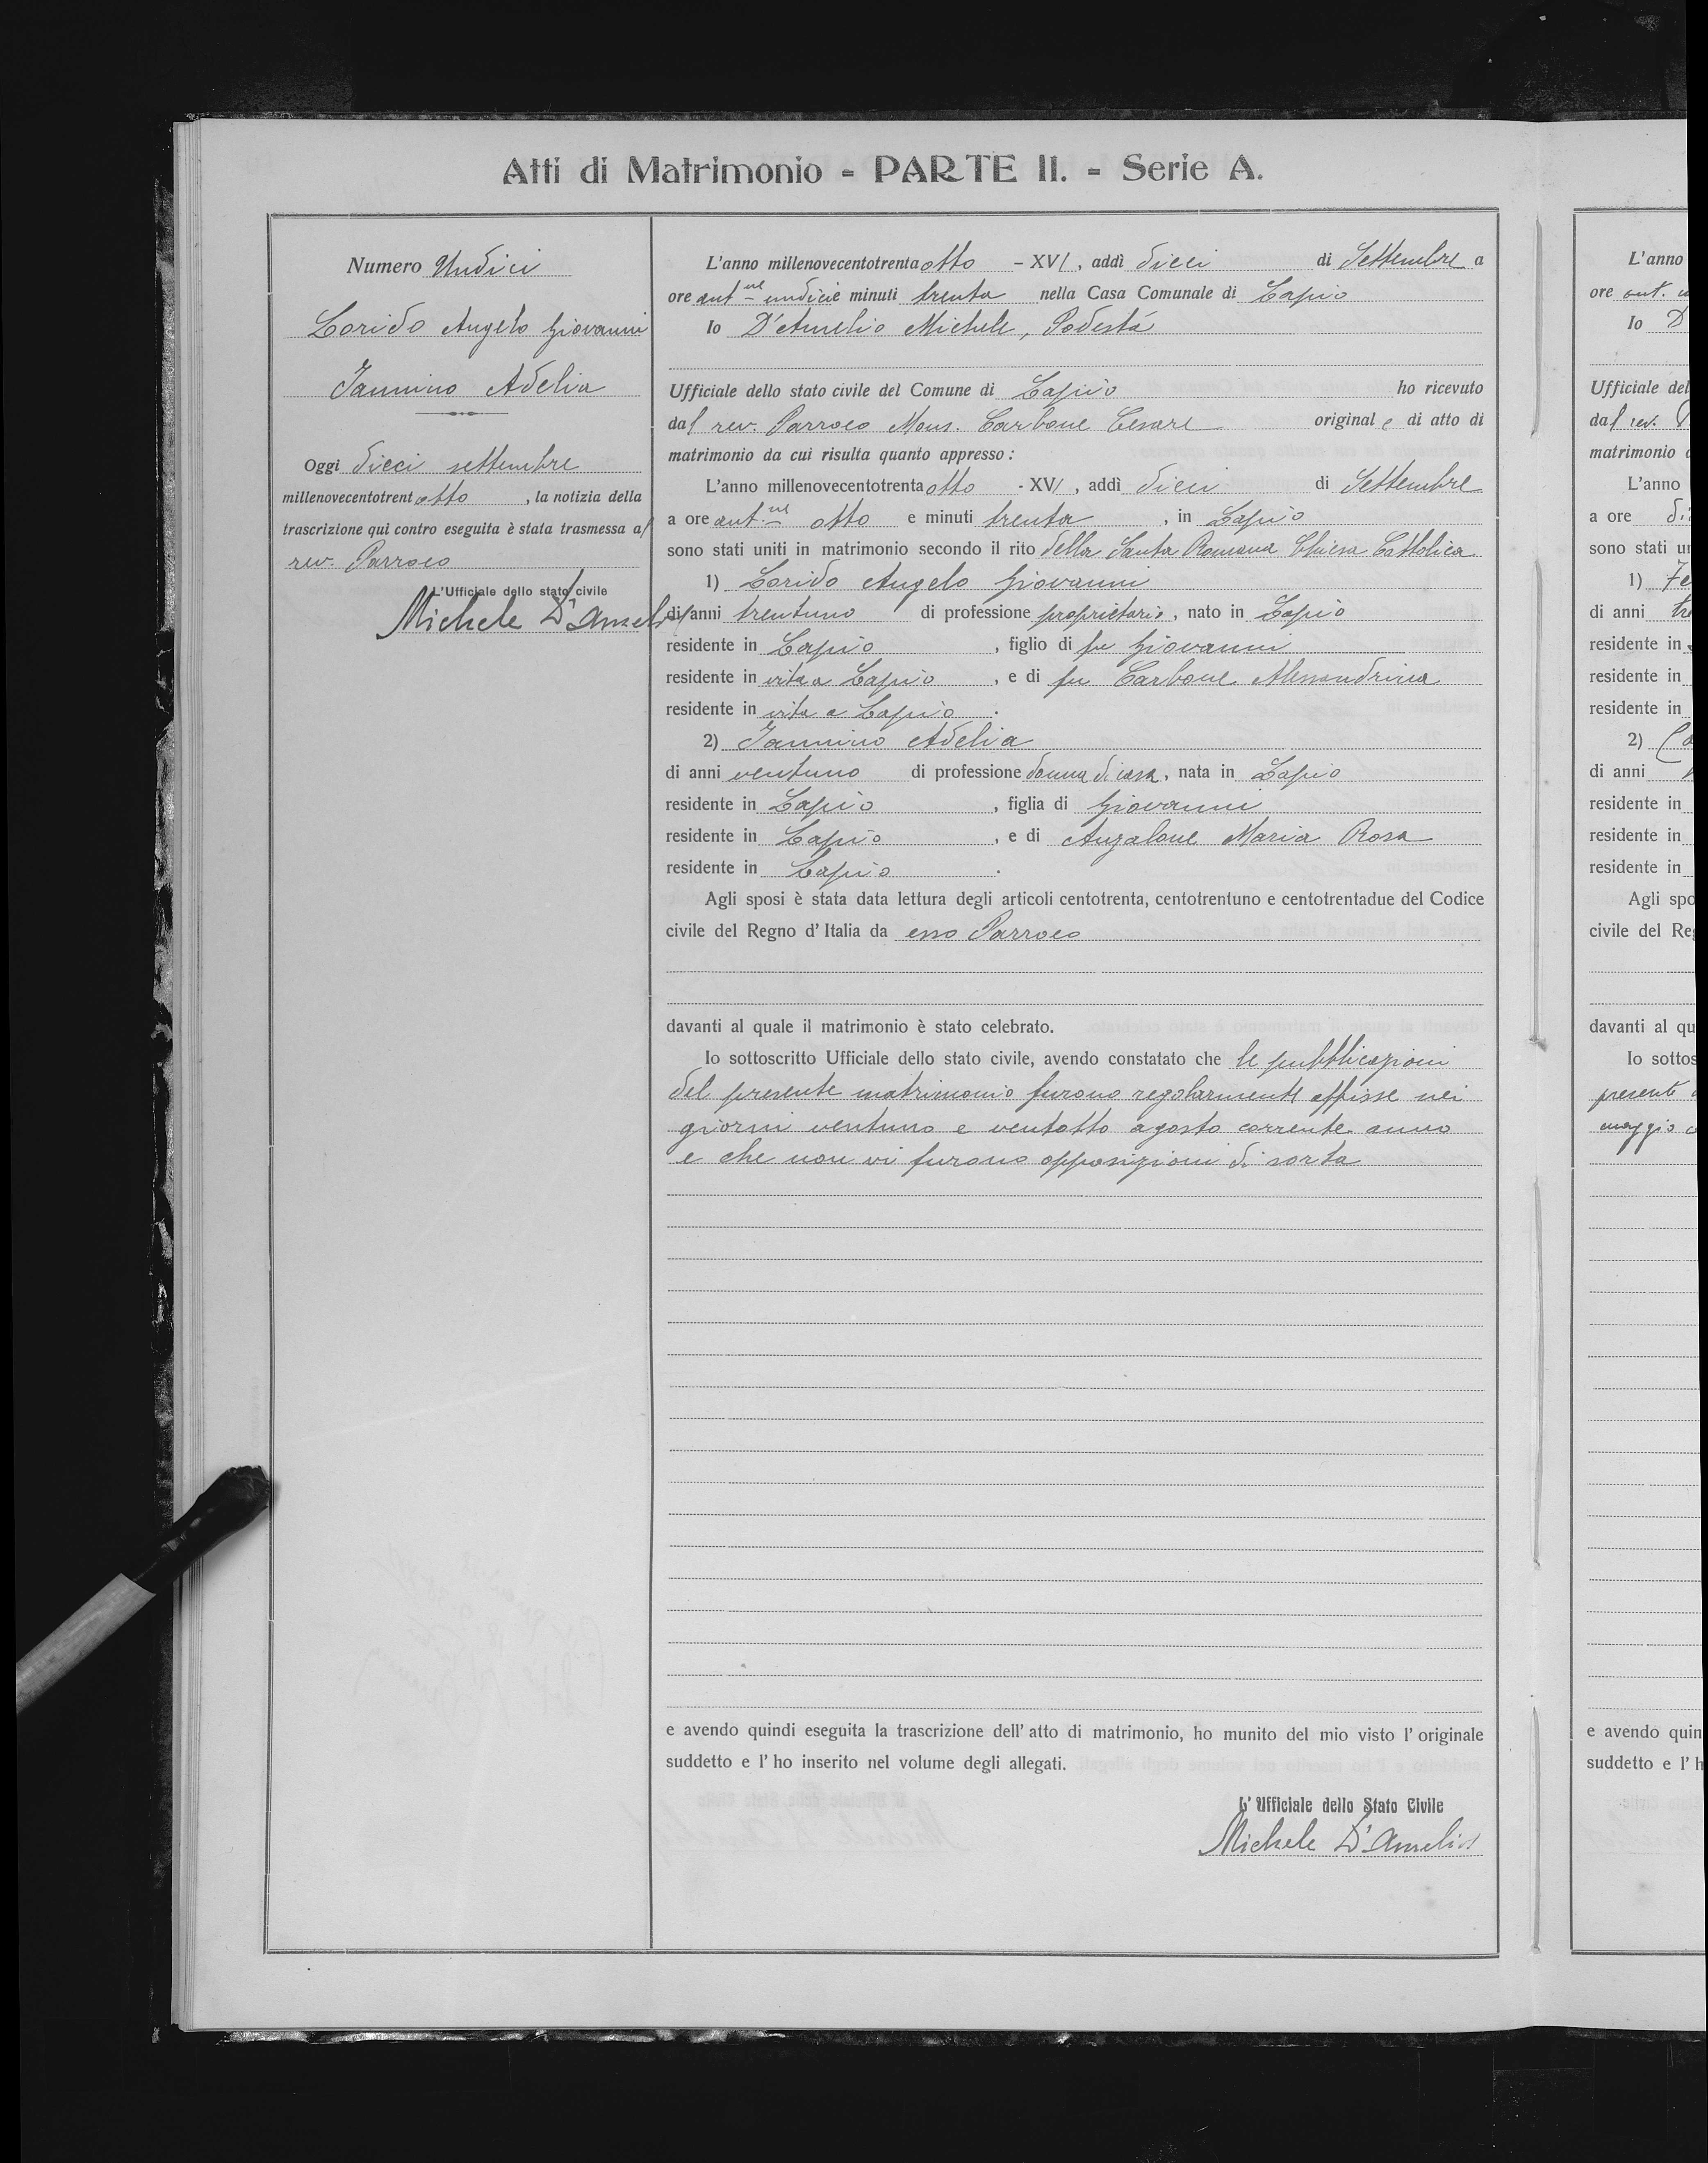 Atti di Matrimonio - PARTE II. - Serie A.
Numero Undici
Lorido Angelo Giovanni
Iannino Adelia
Oggi dieci settembre
millenovecentotrent otto , la notizia della
trascrizione qui contro eseguita è stata trasmessa al
rev. Parroco
L'Ufficiale dello stato civile
Michele D'Amelio
L'anno millenovecentotrenta otto - XVI , addì dieci di Settembre a
ore ant.ne undici e minuti trenta nella Casa Comunale di Lapio
Io D'Amelio Michele, Podestà
Ufficiale dello stato civile del Comune di Lapio ho ricevuto
dal rev. Parroco Mons. Carbone Cesare original e di atto di
matrimonio da cui risulta quanto appresso :
L'anno millenovecentotrenta otto - XVI , addì dieci di Settembre
a ore ant.ne otto e minuti trenta , in Lapio
sono stati uniti in matrimonio secondo il rito della Santa Romana Chiesa Cattolica
1) Lorido Angelo Giovanni
di anni trentuno di professione proprietario , nato in Lapio
residente in Lapio , figlio di fu Giovanni
residente in vita a Lapio , e di fu Carbone Alessandrina
residente in vita a Lapio .
2) Iannino Adelia
di anni ventuno di professione donna di casa , nata in Lapio
residente in Lapio , figlia di Giovanni
residente in Lapio , e di Anzalone Maria Rosa
residente in Lapio .
Agli sposi è stata data lettura degli articoli centotrenta, centotrentuno e centotrentadue del Codice
civile del Regno d' Italia da esso Parroco
davanti al quale il matrimonio è stato celebrato.
Io sottoscritto Ufficiale dello stato civile, avendo constatato che le pubblicazioni
del presente matrimonio furono regolarmente affisse nei
giorni ventuno e ventotto agosto corrente anno
e che non vi furono opposizioni di sorta
e avendo quindi eseguita la trascrizione dell' atto di matrimonio, ho munito del mio visto l' originale
suddetto e l' ho inserito nel volume degli allegati.
L' Ufficiale dello Stato Civile
Michele D'Amelio
L'anno
ore ant.
Io D
Ufficiale del
dal rev.
matrimonio
L'anno
a ore
sono stati
1) Fe
di anni
residente in
residente in
residente in
2)
di anni
residente in
residente in
residente in
Agli spo
civile del Reg
davanti al qu
Io sottos
presente
maggio
e avendo quin
suddetto e l' h